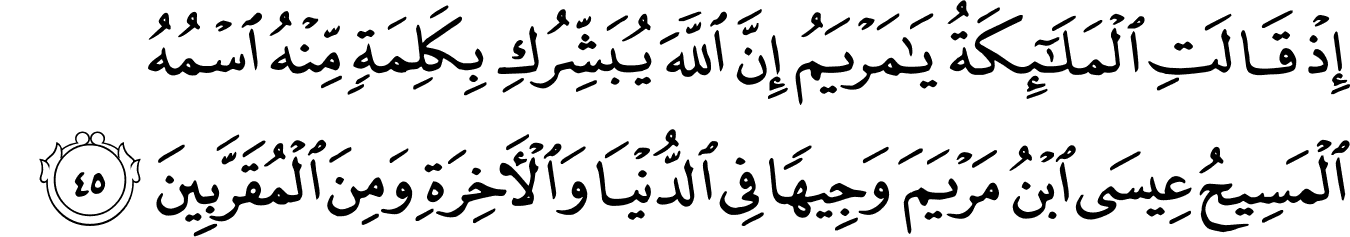 إِذْ قَالَتِ ٱلْمَلَـٰٓئِكَةُ يَـٰمَرْيَمُ إِنَّ ٱللَّهَ يُبَشِّرُكِ بِكَلِمَةٍ مِّنْهُ ٱسْمُهُ
ٱلْمَسِيحُ عِيسَى ٱبْنُ مَرْيَمَ وَجِيهًا فِى ٱلدُّنْيَا وَٱلْأَخِرَةِ وَمِنَ ٱلْمُقَرَّبِينَ ٤٥